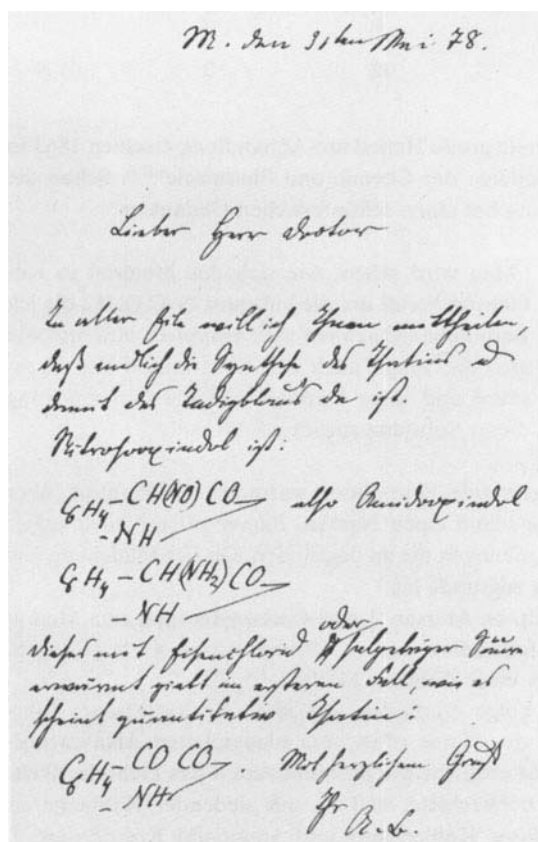 M. den 31ten Mai 78.
Lieber Herr Doctor
In aller Eile will ich Ihnen mittheilen,
daß endlich die Synthese des Isatins u
damit des Indigblau's da ist
Nitrosooxindol ist:
C6H4 - CH(NO) CO also Amidooxindol
- NH
C6H4 - CH(NH2) CO
NH
oder
dieses mit Eisenchlorid salpetriger Säure
erwärmt giebt im ersteren Fall, wie es
scheint quantitativ Isatin
C6H4 - CO CO Mit herzlichem Gruß
- NH
Ihr
A. B.